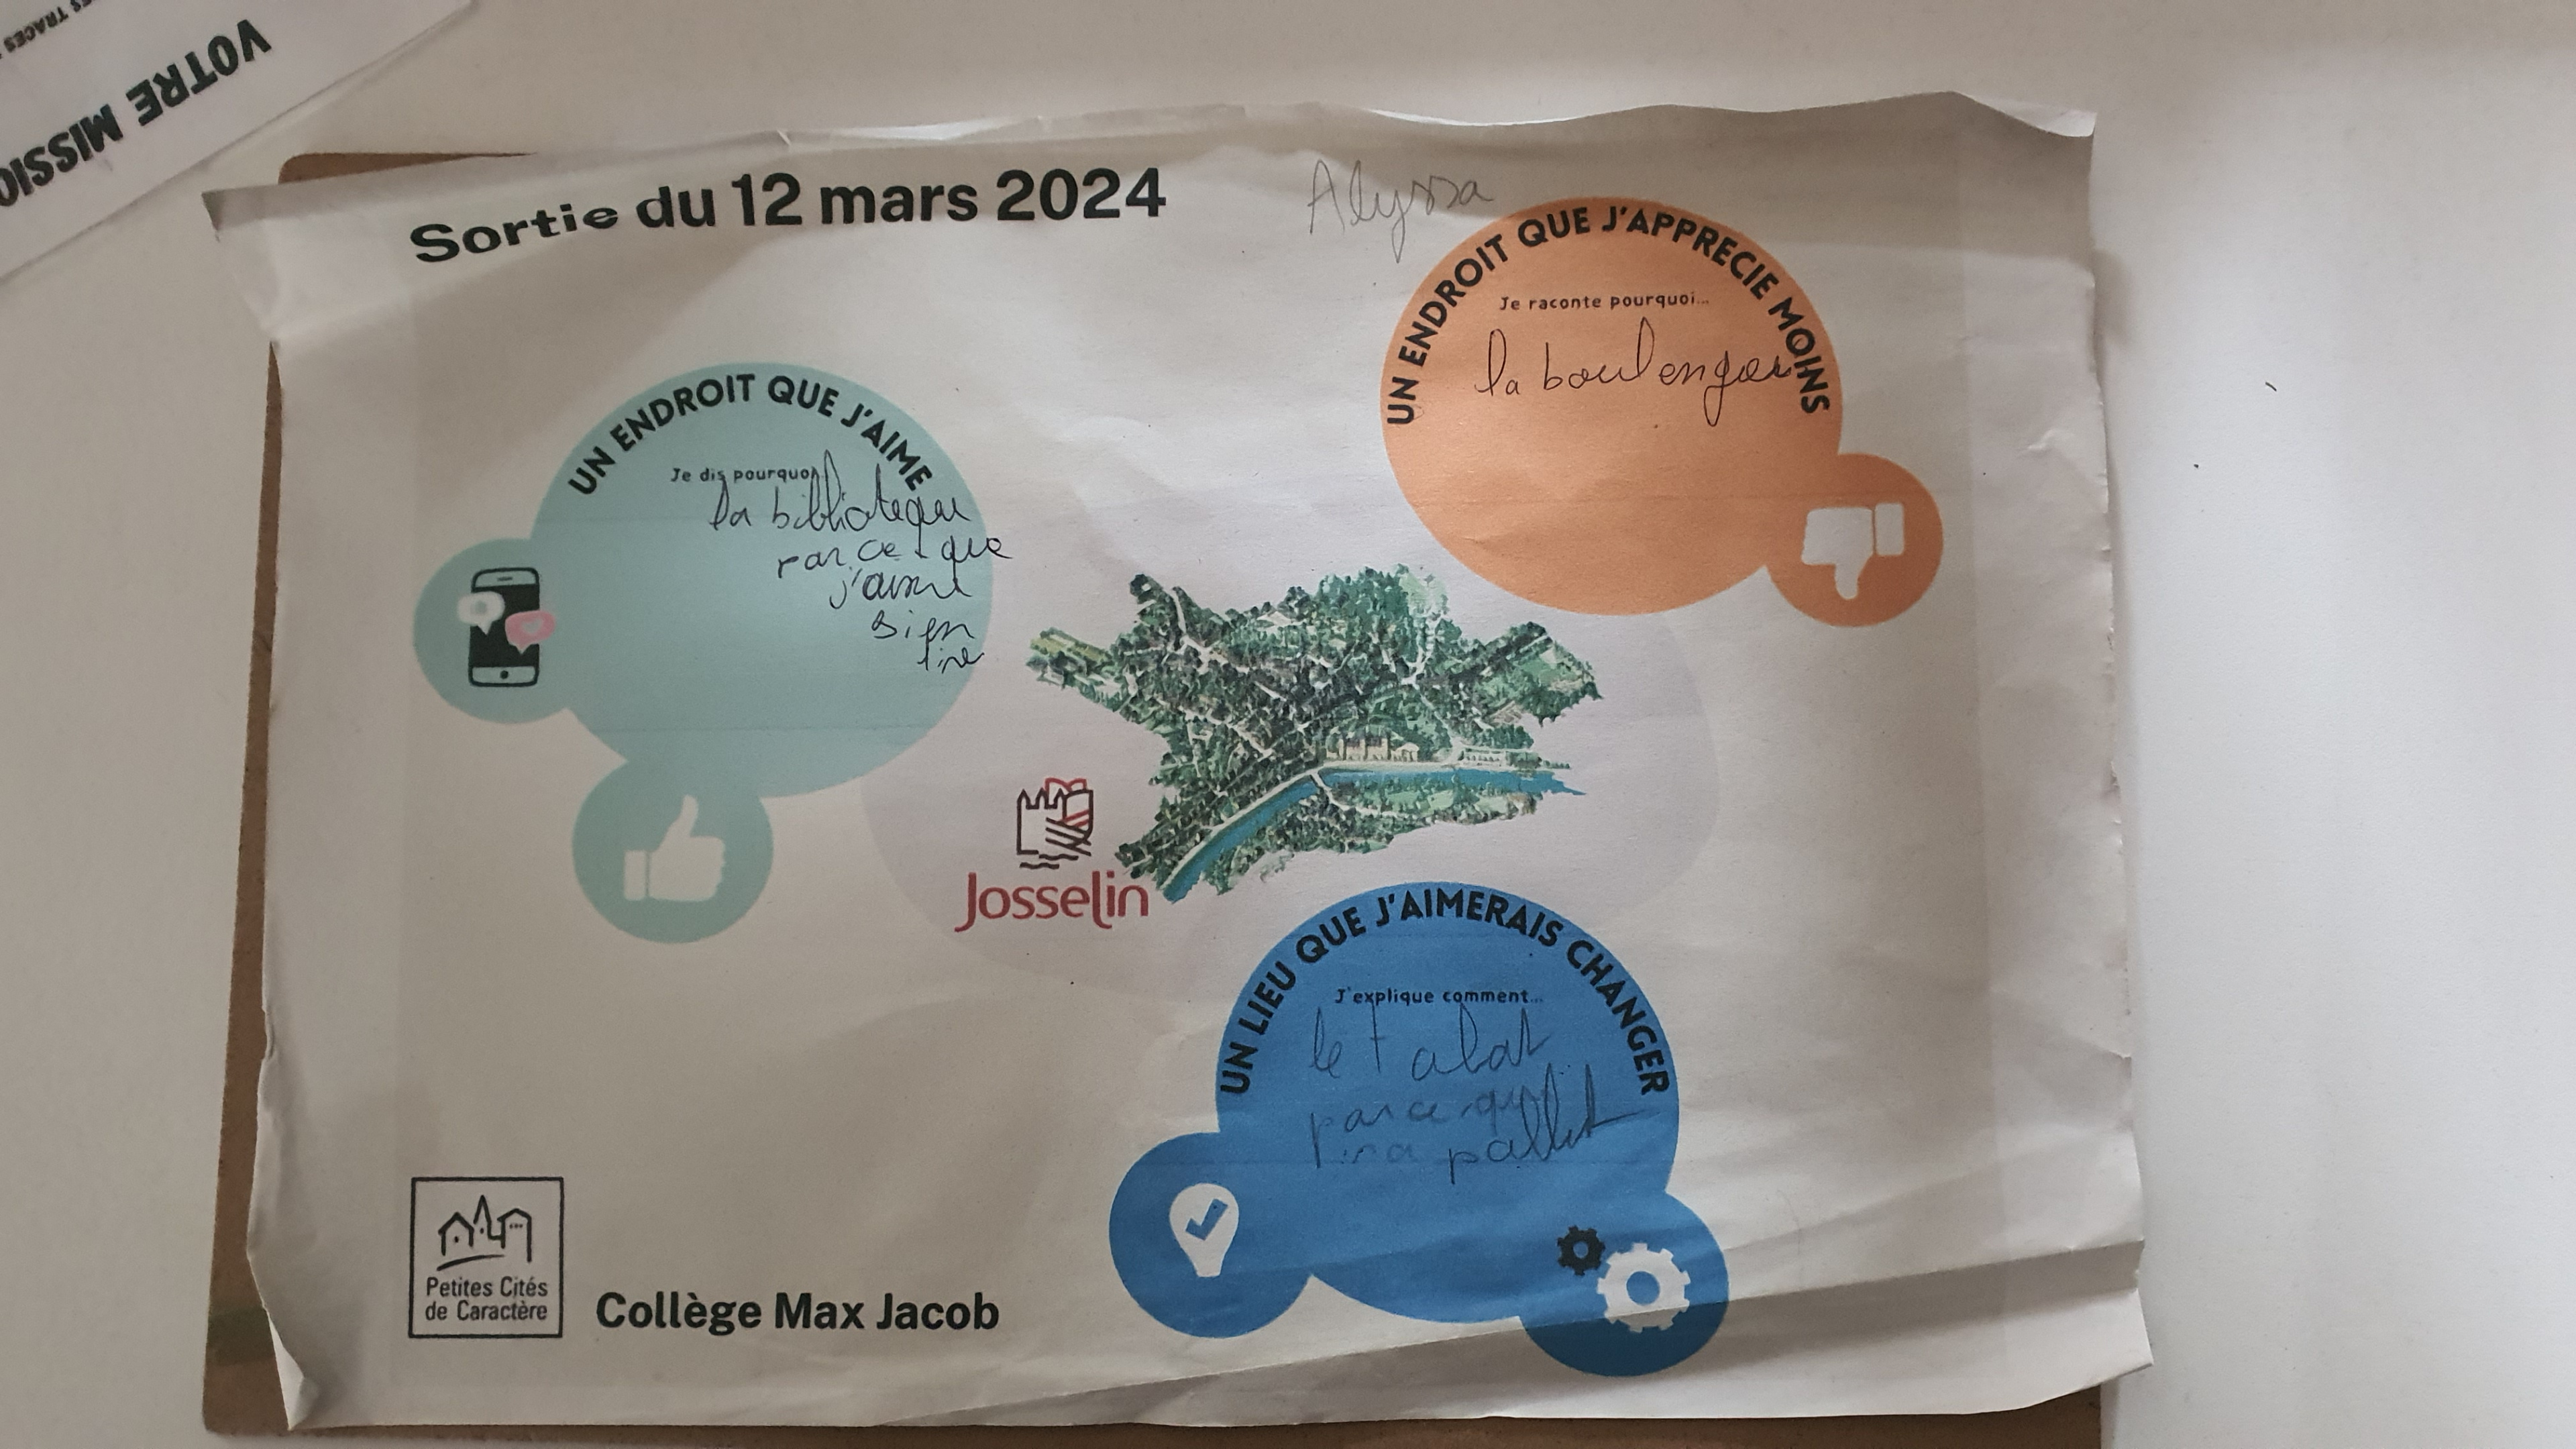 VOTRE MISSIO
Sortie du 12 mars 2024
Alyssa
UN ENDROIT QUE J'AIME
Je dis pourquoi
la bliblioteque
parce que
j'aime
bien
lire
UN ENDROIT QUE J'APPRECIE MOINS
Je raconte pourquoi...
la boulenger
Josselin
UN LIEU QUE J'AIMERAIS CHANGER
J'explique comment...
le
parce que
Petites Cités
de Caractère
Collège Max Jacob